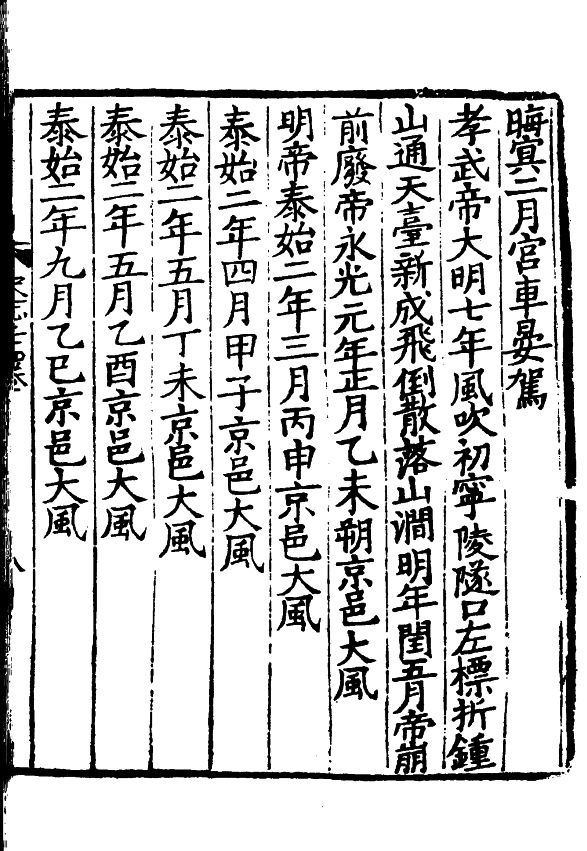 晦冥二月宮車晏駕
孝武帝大明七年風吹初寧陵隧口左標折鍾
山通天臺新成飛倒散落山澗明年閏五月帝崩
前廢帝永光元年正月乙未朔京邑大風
明帝泰始二年三月丙申京邑大風
泰始二年四月甲子京邑大風
泰始二年五月丁未京邑大風
泰始二年五月乙酉京邑大風
泰始二年九月乙巳京邑大風